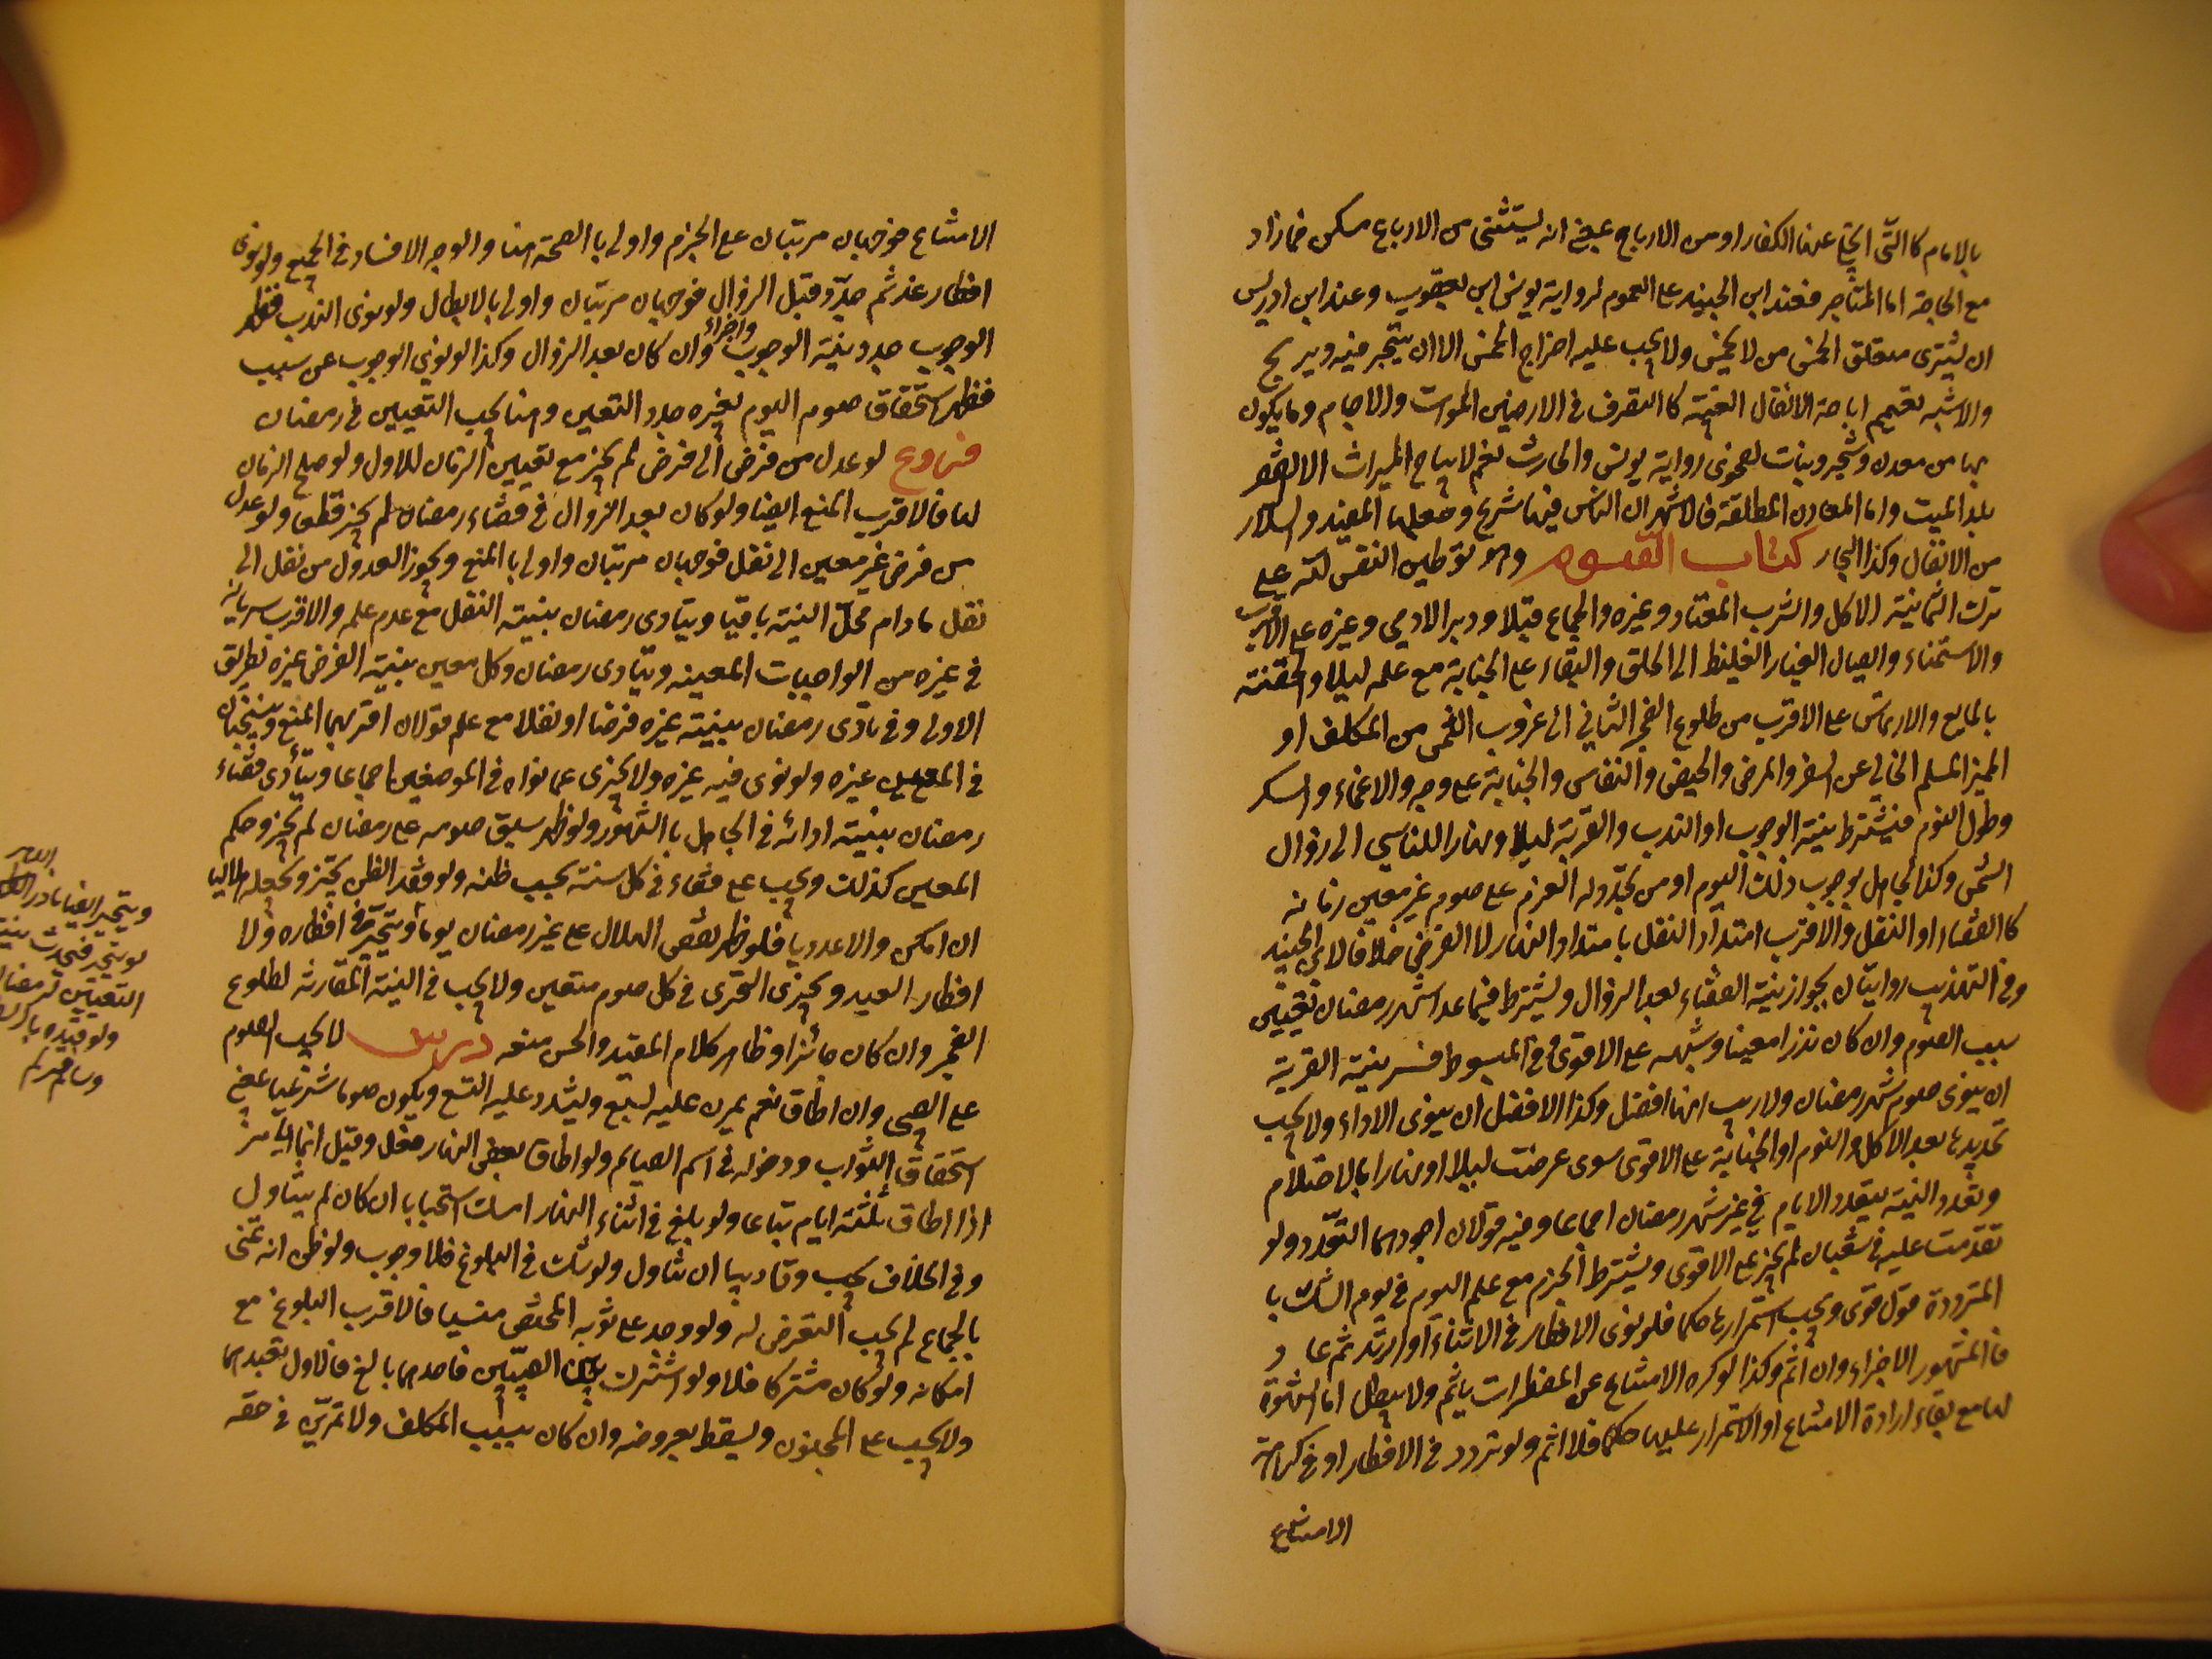 بالامام كالتى انجلى عنها الكفار او من الارباح بمعنى انه يستثنى من الارباع مسكن فما زاد
مع الحاجة اما المتاجر فعند ابن الجنيد على العموم لرواية يونس ابن يعقوب وعند ابن ادريس
ان يشترى متعلق الخمس من لا يخمس ولا يجب عليه اخراج الخمس الا ان يتجر فيه ويربح
والاشبه تعميم اباحة الانفال الغيبة كالتصرف فى الارضين الموات والاجام وما يكون
بها من معدن وشجر ونبات لفحوى رواية يونس والحارث نعم لا يباح الميراث الا لفقراء
بلد الميت واما المعادن المطلقة فالاشهر ان الناس فيها شرع وجعلها المفيد وسلار
من الانفال وكذا البحار كتاب الصوم وهو توطين النفس لله على
ترك الثمانية الاكل والشرب المعتاد وغيره والجماع قبلا ودبر الادمى وغيره على الاقرب
والاستمناء وايصال الغبار الغليظ الى الحلق والبقاء على الجنابة مع علمه ليلا والحقنة
بالمايع والارتماس على الاقرب من طلوع الفجر الثانى الى غروب الشمس من المكلف او
المميز المسلم الخالى عن السفر والمرض والحيض والنفاس والجنابة على وجه والاغماء والسكر
وطول النوم فيشترط بنية الوجوب او الندب والقربة ليلا ونهارا للناسى الى زوال
الشمس وكذا الجاهل بوجوب ذلك اليوم او من تجدد له العزم على صوم غير معين زمانه
كالقضاء او النفل والاقرب امتداد النفل بامتداد النهار لا الفرض خلافا لابن الجنيد
وفى التهذيب روايتان بجواز نية القضاء بعد الزوال ويشترط فيما عدا شهر رمضان تعيين
سبب الصوم وان كان نذرا معينا وشبهه على الاقوى وفى المبسوط فسر بنية القربة
ان ينوى صوم شهر رمضان ولا ريب انها افضل وكذا الافضل ان ينوى الاداء ولا يجب
تجديدها بعد الاكل والنوم او الجنابة على الاقوى سوى عرضت ليلا او نهارا بالاحتلام
وتعدد النية بتعدد الايام فى غير شهر رمضان اجماعا وفيه قولان اجودهما التعدد ولو
تقدمت عليه فى شعبان لم يجز على الاقوى ويشترط الجزم مع علم اليوم فى يوم الشك با
المترددة قول قوى ويجب استمرارها حكما فلو نوى الافطار فى الاثناء او ارتد ثم عا د
فالمشهور الاجزاء وان اثم وكذا لو كره الامتناع عن المفطرات ياثم ولا يبطل اما الشهوة
لها مع بقاء ارادة الامتناع او الاستمرار عليها حكما فلا اثم ولو تردد فى الافطار او فى كراهة
الامتناع
الامتناع فوجهان مرتبان على الجزم واولى بالصحة هنا والوجه الافساد فى الجميع ولو نوى
افطار غد ثم جدد قبل الزوال فوجهان مرتبان واولى بالابطال ولو نوى الندب فظهر
الوجوب جدد بنية الوجوب واجزاء وان كان بعد الزوال وكذا لو نوى الوجوب عن سبب
فظهر استحقاق صوم اليوم بغيره جدد التعيين وهنا يجب التعيين فى رمضان
فروع لو عدل من فرض الى فرض لم يجز مع تعيين الزمان للاول ولو صلح الزمان
لهما فالاقرب المنع ايضا ولو كان بعد الزوال فى قضاء رمضان لم يجز قطعا ولو عدل
من فرض غير معين الى نفل فوجهان مرتبان واولى بالمنع ويجوز العدول من نفل الى
نفل ما دام محل النية باقيا ويتادى رمضان بنية النفل مع عدم علمه والاقرب سريانه
فى غيره من الواجبات المعينه ويتادى رمضان وكل معين بنية الفرض غيره بطريق
الاولى وفى تادى رمضان بنية غيره فرضا او نفلا مع علمه قولان اقربهما المنع وينسحبان
فى المعين غيره ولو نوى فيه غيره ولا يجزى عما نواه فى الموضعين اجماعا ويتأدى قضاء
رمضان بنية ادائه فى الجاهل بالشهور ولو ظهر سبق صومه على رمضان لم يجز وحكم
المعين كذلك ويجب على قضاء فى كل سنة بحسب ظنه ولو فقد الظن تخير ويجعله هلاليا
ان امكن والا عدديا فلو ظهر نقص الهلال على غير رمضان يوما ويتخير فى افطاره ولا
افطار العيد ويجزى التحرى فى كل صوم متعين ولا يجب فى النية المقارنة لطلوع
الفجر وان كان جائزا وظاهر كلام المفيد والحسن منعه درس لا يجب الصوم
على الصبى وان اطاق نعم يمرن عليه لسبع ويشدد عليه لتسع ويكون صوما شرعيا بمعنى
استحقاق الثواب ودخوله فى اسم الصيام ولو اطاق بعض النهار فعل وقيل انما يؤمر
اذا اطاق ثلثة ايام تباعا ولو بلغ فى اثناء النهار امسك استحبابا ان كان لم يتناول
وفى الخلاف يجب وتاديبا ان تناول ولو شك فى البلوغ فلا وجوب ولو ظن انه يمنى
بالجماع لم يجب التعرض له ولو وجد على ثوبه المختص منيا فالاقرب البلوغ مع
امكانه ولو كان مشتركا فلا ولو اشترك بين الصبيين فاحدهما بالغ فالاول تعبدهما
ولا يجب على المجنون ويسقط بعروضه وان كان بسبب المكلف ولا تمرين فى حقه
ويتخير ايضا
لو يتخير فتحدث بنية
التعيين لرمضان
ولو قيده